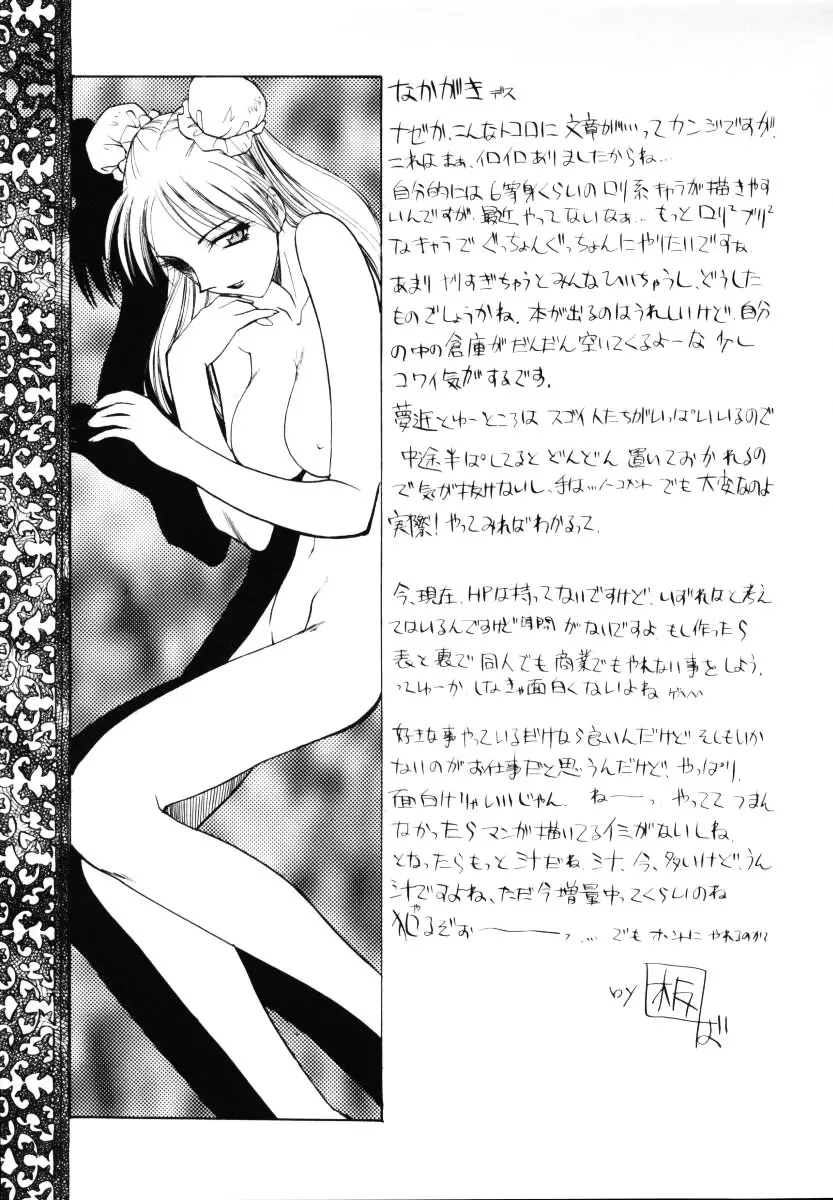 なかがきデス
ナゼか、こんなトコロに文章が…ってカンジですが、
これはまぁ、イロイロありましたからね…
自分的には6等身くらいのロリ系キャラが描きやす
いんですが、最近やってないなぁ… もっとロリ²ブリ²
なキャラでぐっちょんぐっちょんにやりたいですね
あまりやりすぎちゃうとみんなひいちゃうし、どうした
ものでしょうかね。本が出るのはうれしいけど、自分
の中の倉庫がだんだん空いてくるよーな 少し
コワイ気がするです。
とゆーところは スゴイ人たちがいっぱいいるので
中途半ぱしてると どんどん 置いておかれるの
で気が抜けないし、手は…ノーコメント でも大変なのよ
実際! やってみればわかるって、
今、現在、HPは持ってないですけど、いずれはと考え
てはいるんですけど時間がないですよ もし作ったら
表と裏で同人でも商業でもやれない事をしよう、
ってゆーか、しなきゃ面白くないよね
好きな事やっているだけなら良いんだけど、そしもいか
ないのがお仕事だと思うんだけど、やっぱり、
面白けりゃいいじゃん、ねーっ、やってて つまん
なかったらマンガ描いてるイミがないしね、
となったらもっと汁だね、汁、今、多いけど、うん
汁ですよね、ただ今増量中ってくらいのね
犯るぞぉーーっ… でも ホントに やれるのか?
by 板 ば